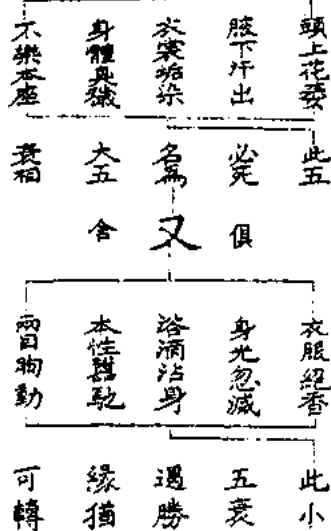 頭上花萎
腋下汗出
衣裳垢染
身體臭穢
不樂本座
此五
必死
名為
大五
衰相
又
俱
舍
衣服絕香
身光忽滅
浴滴沾身
本性囂馳
兩目眴動
此小
五衰
遇勝
緣猶
可轉